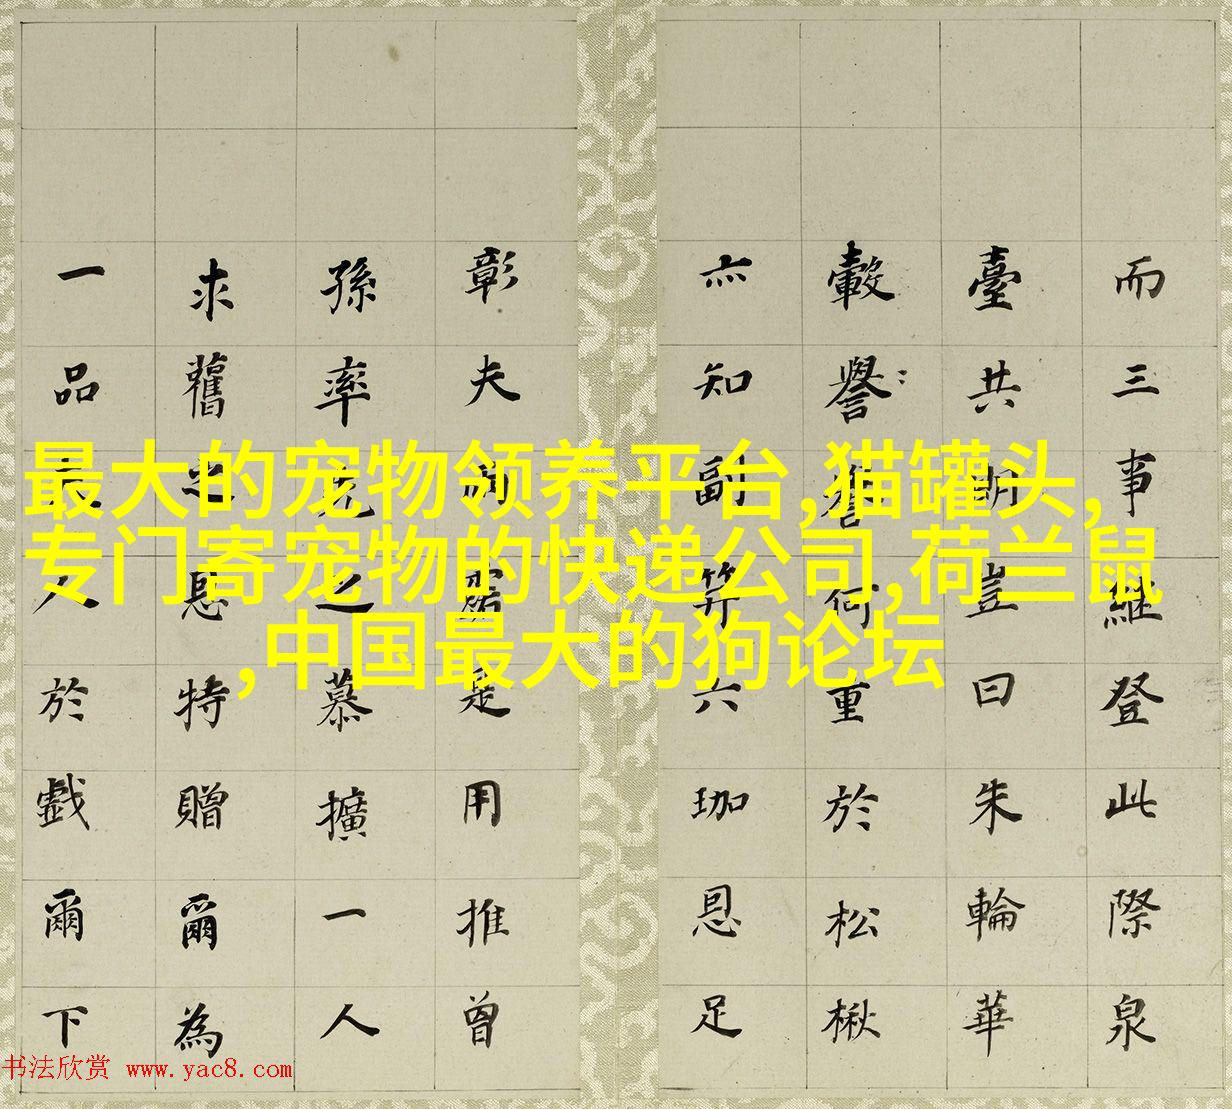 而三事継登此際泉
臺共朝豈曰朱輪華
轂譽何重於松楸
亦知副笄六珈恩足
彰夫是用推曾
孫率之慕擴一人
求舊之恩特贈爾為
一品人於戲爾下
最大的宠物领养平台,猫罐头,
专门寄宠物的快递公司,荷兰鼠
,中国最大的狗论坛
书法欣赏 www.yac8.com